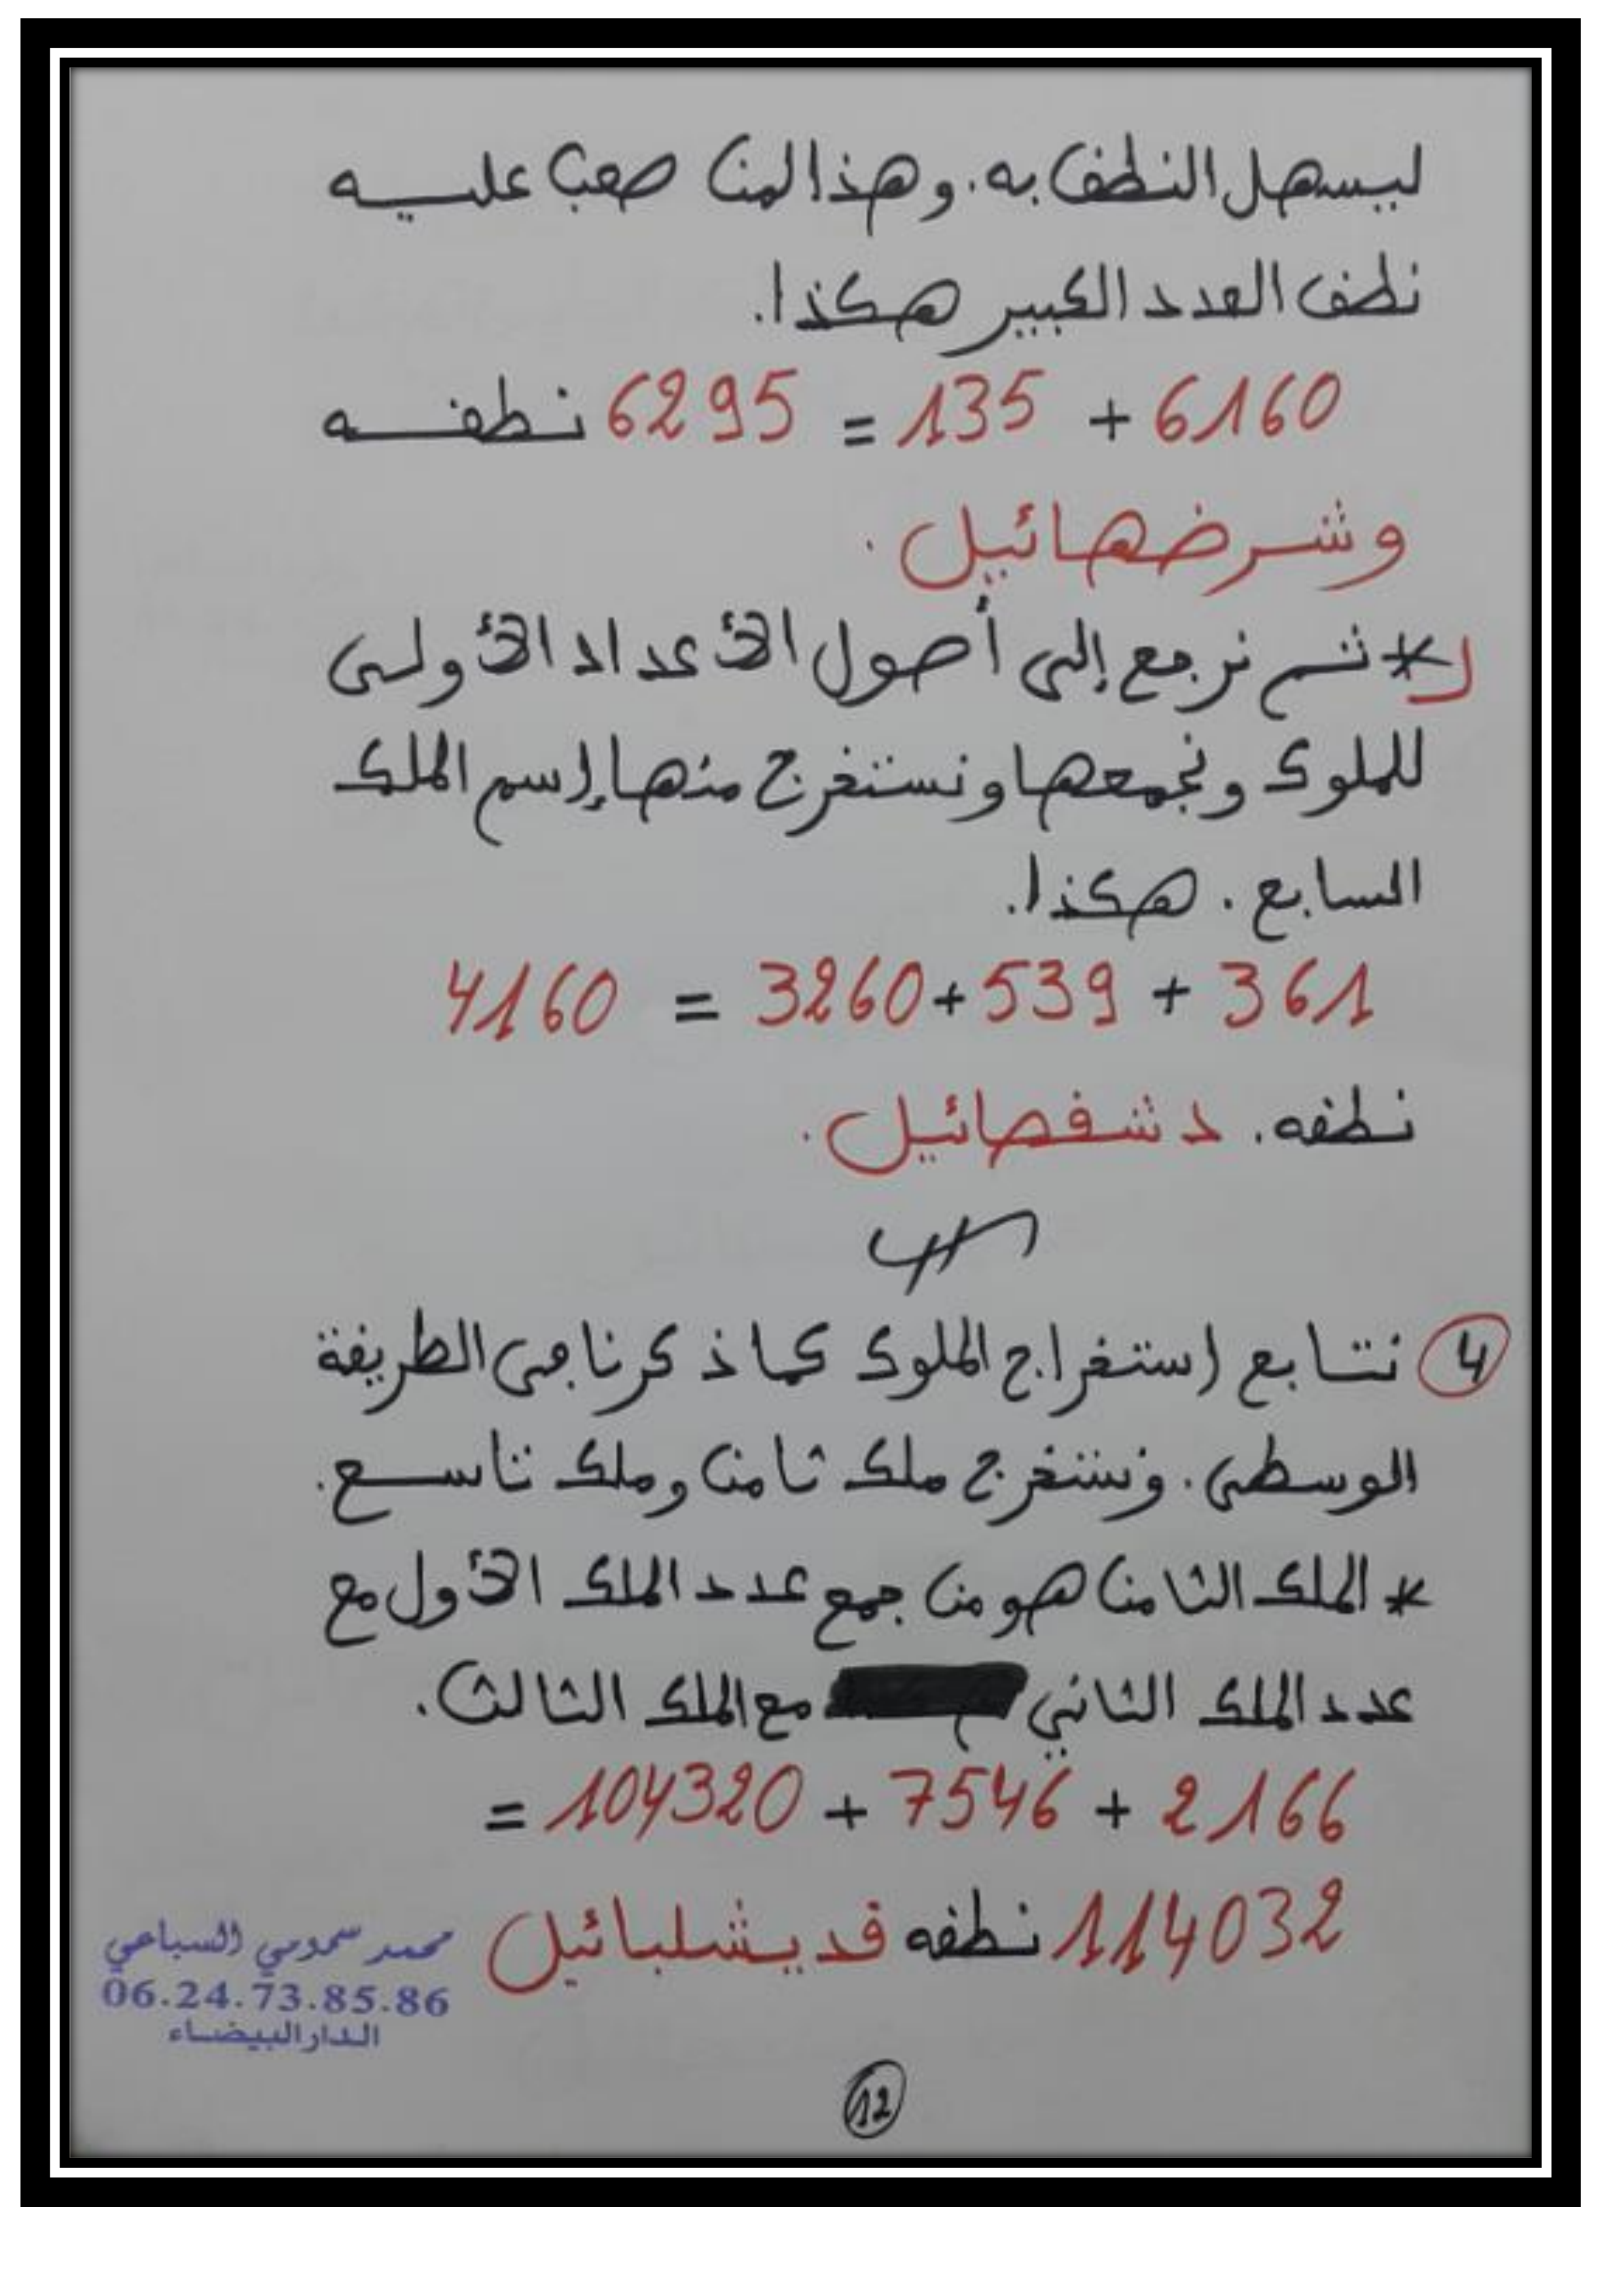 ليسهل النطق به. وهذا لمن صعب عليه
نطق العدد الكبير هكذا.
6160 + 135 = 6295 نطقه
وشرضهائيل.
* ثم نرجع إلى أصول الأعداد الأولى
للملوك ونجمعها ونستخرج منها إسم الملك
السابع. هكذا.
361 + 539 + 3260 = 4160
نطقه. دشفصائيل.
4 نتابع إستخراج الملوك كما ذكرنا في الطريقة
الوسطى. ونستخرج ملك ثامن وملك تاسع.
* الملك الثامن هو من جمع عدد الملك الأول مع
عدد الملك الثاني مع الملك الثالث.
2166 + 7546 + 104320 =
114032 نطقه قديشلبائيل
محمد سمومي السباعي
06.24.73.85.86
الدار البيضاء
12